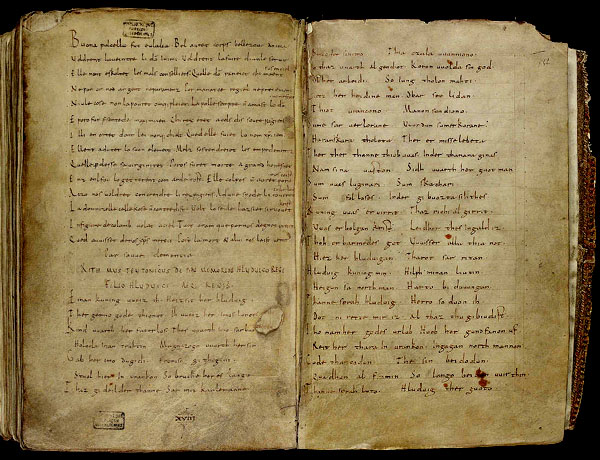 Buona pulcella fut eulalia. Bel auret corps bellezour anima
Voldrent la ueintre li dõ inimi. Voldrent la faire diaule seruir
Elle nont eskoltet les mals conselliers. Quelle dõ raneiet chi maent
Ne por or ned argent ne paramenz. Por manatce regiel ne preiement
Niule cose non la pouret omque pleier. La polle sempre n amast lo dõ
E poro fut presentede maximiien. Chi rex eret a cels dis soure pagiens
Il li enortet dont lei nonque chielt. Qued elle fuiet lo nom xpiien
Ellent adunet lo suon element. Melz sostendreiet les empedementz
Quelle perdesse sa uirginitet. Poros furet morte a grand honestet
Enz enl fou lo getterent com arde tost. Elle colpes n auret poro
A czo nos uoldret concreidre li rex pagiens. Ad une spede li roueret
La domnizelle celle kose n contredist. Volt lo seule lazsier si ruouet
In figure de colomb uolat a ciel. Tuit oram que por nos degnet preier
Qued auuisset de nos xps mercit Post la mort & a lui nos laist uenir
Par souue clementia
RITHMUS TEUTONICUS DE PIAE MEMORIAE HLUDUICO REGE
FILIO HLUDUICI AEQ REGIS
Einan kuning uueiz ih Heizsit her hluduig
Ther gerno gode thionot Ih uueiz her imos lonot
Kind uuarth her faterlos Thes uuarth imo sar
Holoda inan truhtin Magaczogo uuarth her sin
Gab her imo dugidi Fronisc githigini
Stual hier in urankon So bruche her es lango
Thaz gideilder thanne Sar mit karlemanne
XVIII
Thia czala uuunniono
So thaz uuarth al gendiot Koron uuolda sin god
Ob her arbeidi So iung tholon mahti
Lietz her heidine man Obar seo lidan
Thiot urancono Manon sundiono
Sume sar uerlorane Uuurdun sumerkorane
Haranskara tholota Ther er misselebeta
Ther ther thanne thiob uuas Inder thanana ginas
Nam sina uaston Sidh uuarth her guot man
Sum uuas luginari Sum skachari
Sum fol loses Inder gibuozta sih thes
Kuning uuas eruirrit Thaz richi al girrit
Uuas erbolgan krist Leidhor thes ingald iz
Thoh erbarmedes got Uuisser alla thia not
Hiez her hluduigan Tharot sar ritan
Hluduig kuning min Hilph minan liutin
Heigun sa northman Harto biduuungan
Thanne sprah hluduig Herro so duon ih
Dot ni rette mir iz Al thaz thu gibiudist
Tho nam her godes urlub Huob her gundfanon uf
Reit her thara in urankon Ingagan northmannon
Gode thancodun The sin beidodun
Quadhun al fromin So lango beidon uuir thin
Thanne sprah luto Hluduig ther guoto